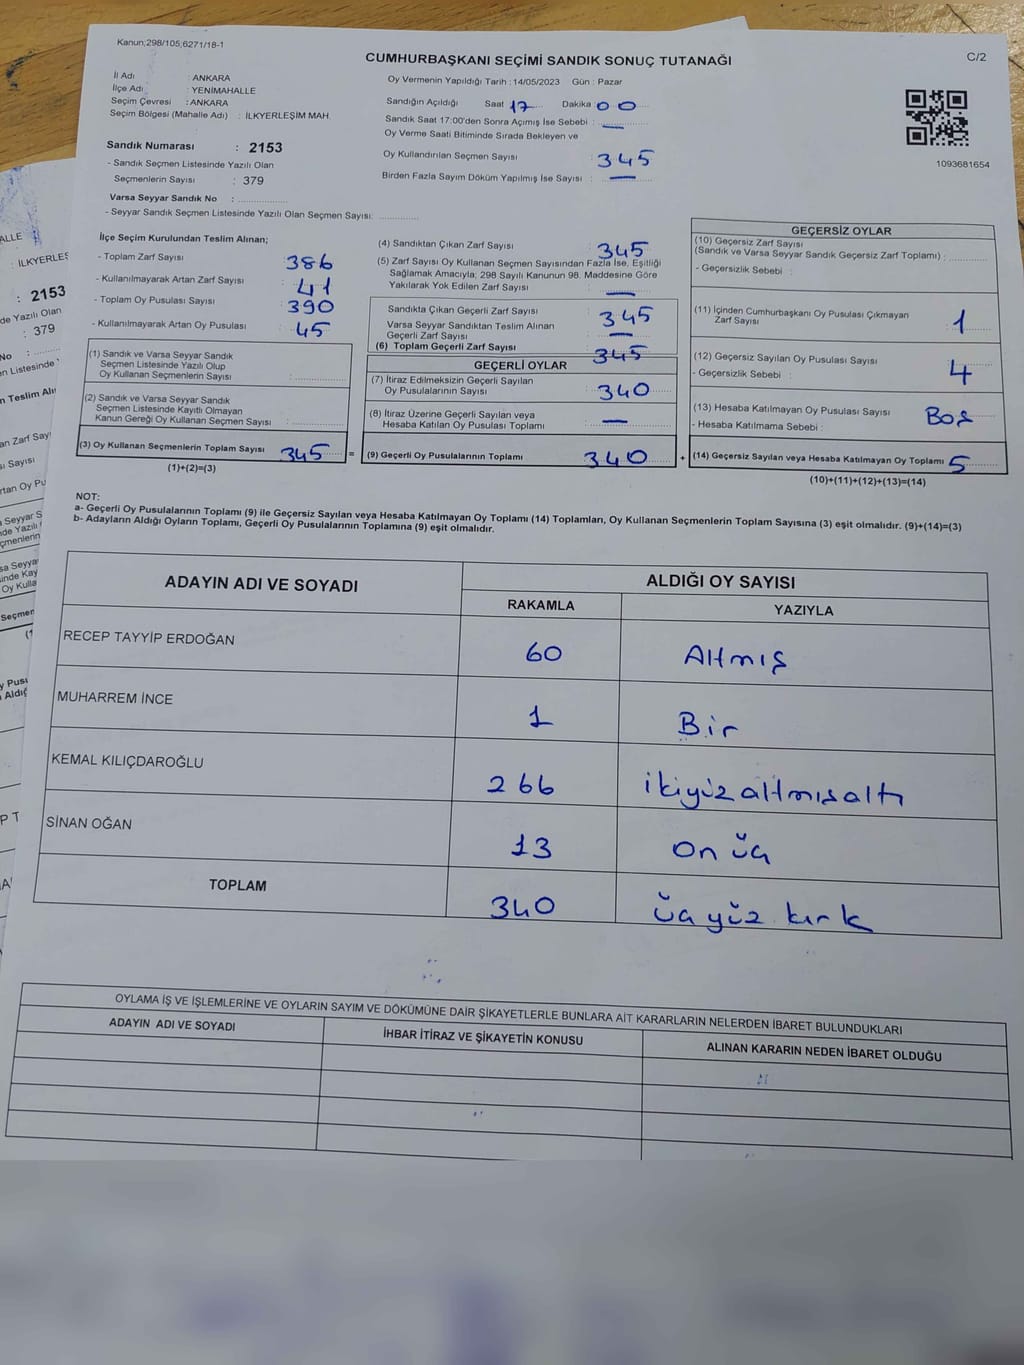 Kanun;298/105;6271/18-1
C/2
CUMHURBAŞKANI SEÇİMİ SANDIK SONUÇ TUTANAĞI
İl Adı : ANKARA
İlçe Adı : YENİMAHALLE
Seçim Çevresi : ANKARA
Seçim Bölgesi (Mahalle Adı) : İLKYERLEŞİM MAH.
Sandık Numarası : 2153
- Sandık Seçmen Listesinde Yazılı Olan
Seçmenlerin Sayısı : 379
Varsa Seyyar Sandık No :
- Seyyar Sandık Seçmen Listesinde Yazılı Olan Seçmen Sayısı:
Oy Vermenin Yapıldığı Tarih : 14/05/2023 Gün : Pazar
Sandığın Açıldığı Saat 17 Dakika 00
Sandık Saat 17:00'den Sonra Açımış İse Sebebi : —
Oy Verme Saati Bitiminde Sırada Bekleyen ve
Oy Kullandırılan Seçmen Sayısı : 345
Birden Fazla Sayım Döküm Yapılmış İse Sayısı : —
1093681654
İlçe Seçim Kurulundan Teslim Alınan;
- Toplam Zarf Sayısı : 386
- Kullanılmayarak Artan Zarf Sayısı : 41
- Toplam Oy Pusulası Sayısı : 390
- Kullanılmayarak Artan Oy Pusulası : 45
(1) Sandık ve Varsa Seyyar Sandık
Seçmen Listesinde Yazılı Olup
Oy Kullanan Seçmenlerin Sayısı :
(2) Sandık ve Varsa Seyyar Sandık
Seçmen Listesinde Kayıtlı Olmayan
Kanun Gereği Oy Kullanan Seçmen Sayısı :
(3) Oy Kullanan Seçmenlerin Toplam Sayısı 345
(1)+(2)=(3)
(4) Sandıktan Çıkan Zarf Sayısı : 345
(5) Zarf Sayısı Oy Kullanan Seçmen Sayısından Fazla İse, Eşitliği
Sağlamak Amacıyla; 298 Sayılı Kanunun 98. Maddesine Göre
Yakılarak Yok Edilen Zarf Sayısı : —
Sandıkta Çıkan Geçerli Zarf Sayısı : 345
Varsa Seyyar Sandıktan Teslim Alınan
Geçerli Zarf Sayısı : —
(6) Toplam Geçerli Zarf Sayısı : 345
GEÇERLİ OYLAR
(7) İtiraz Edilmeksizin Geçerli Sayılan
Oy Pusulalarının Sayısı : 340
(8) İtiraz Üzerine Geçerli Sayılan veya
Hesaba Katılan Oy Pusulası Toplamı : —
= (9) Geçerli Oy Pusulalarının Toplamı 340 +
GEÇERSİZ OYLAR
(10) Geçersiz Zarf Sayısı
(Sandık ve Varsa Seyyar Sandık Geçersiz Zarf Toplamı) :
- Geçersizlik Sebebi :
(11) İçinden Cumhurbaşkanı Oy Pusulası Çıkmayan
Zarf Sayısı : 1
(12) Geçersiz Sayılan Oy Pusulası Sayısı : 4
- Geçersizlik Sebebi :
(13) Hesaba Katılmayan Oy Pusulası Sayısı : Boş
- Hesaba Katılmama Sebebi :
(14) Geçersiz Sayılan veya Hesaba Katılmayan Oy Toplamı 5
(10)+(11)+(12)+(13)=(14)
NOT:
a- Geçerli Oy Pusulalarının Toplamı (9) ile Geçersiz Sayılan veya Hesaba Katılmayan Oy Toplamı (14) Toplamları, Oy Kullanan Seçmenlerin Toplam Sayısına (3) eşit olmalıdır. (9)+(14)=(3)
b- Adayların Aldığı Oyların Toplamı, Geçerli Oy Pusulalarının Toplamına (9) eşit olmalıdır.
ADAYIN ADI VE SOYADI ALDIĞI OY SAYISI
RAKAMLA YAZIYLA
RECEP TAYYİP ERDOĞAN 60 Altmış
MUHARREM İNCE 1 Bir
KEMAL KILIÇDAROĞLU 266 ikiyüzaltmışaltı
SİNAN OĞAN 13 on üç
TOPLAM 340 üçyüz kırk
OYLAMA İŞ VE İŞLEMLERİNE VE OYLARIN SAYIM VE DÖKÜMÜNE DAİR ŞİKAYETLERLE BUNLARA AİT KARARLARIN NELERDEN İBARET BULUNDUKLARI
ADAYIN ADI VE SOYADI İHBAR İTİRAZ VE ŞİKAYETİN KONUSU ALINAN KARARIN NEDEN İBARET OLDUĞU
: 2153
: 379